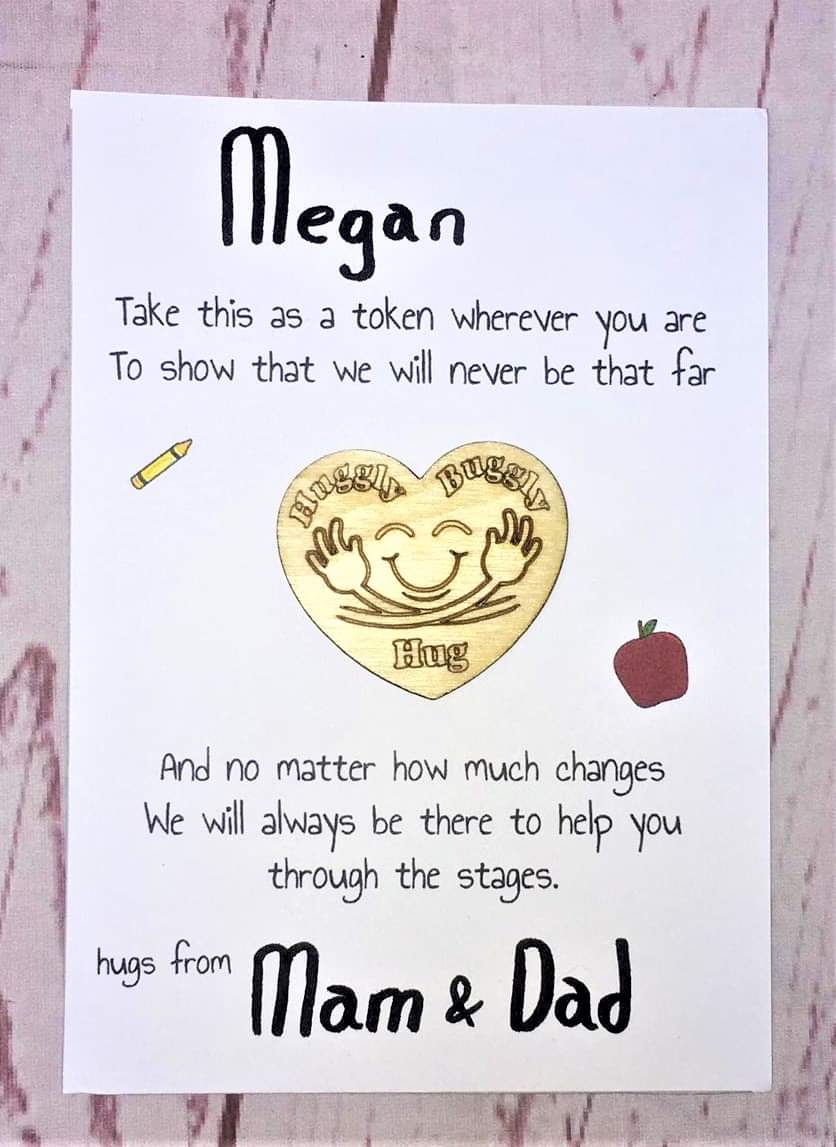 Megan
Take this as a token wherever you are
To show that we will never be that far
Huggly Buggly
Hug
And no matter how much changes
We will always be there to help you
through the stages.
hugs from Mam & Dad